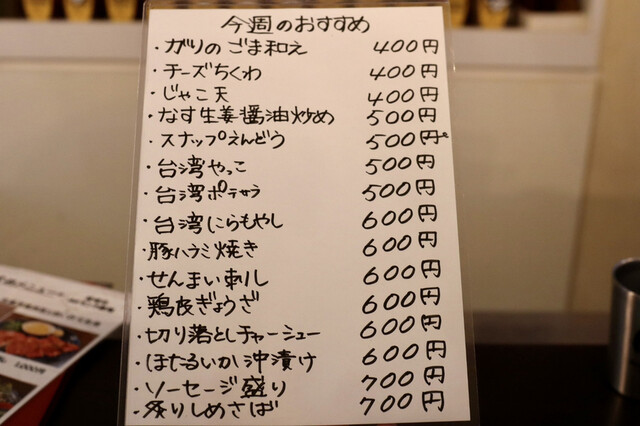 今週のおすすめ
・ガリのごま和え 400円
・チーズちくわ 400円
・じゃこ天 400円
・なす生姜醤油炒め 500円
・スナップえんどう 500円
・台湾やっこ 500円
・台湾ポテサラ 500円
・台湾にらもやし 600円
・豚ハラミ焼き 600円
・せんまい刺し 600円
・鶏皮ぎょうざ 600円
・切り落としチャーシュー 600円
・ほたるいか沖漬け 600円
・ソーセージ盛り 700円
・炙りしめさば 700円
1,000円